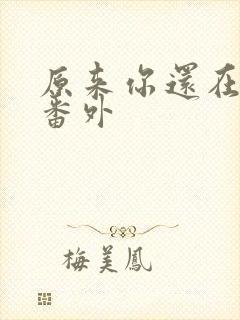 原来你還在
番外
梅美鳳